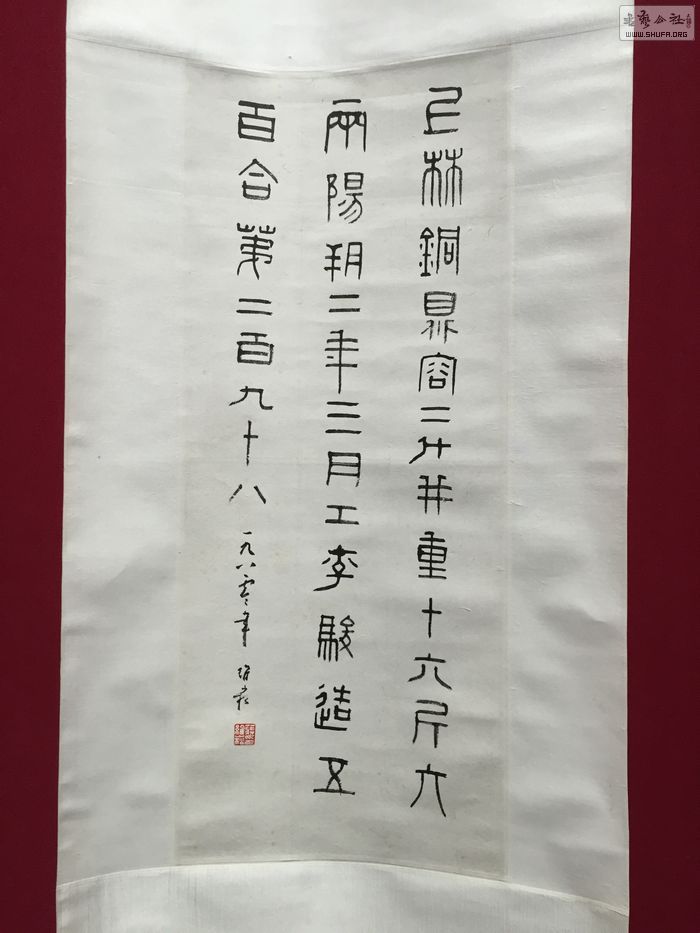 上林銅鼎容二斗并重十六斤六
兩陽朔二年三月工李駿造五
百合第二百九十八
一九八零年
WWW.SHUFA.ORG